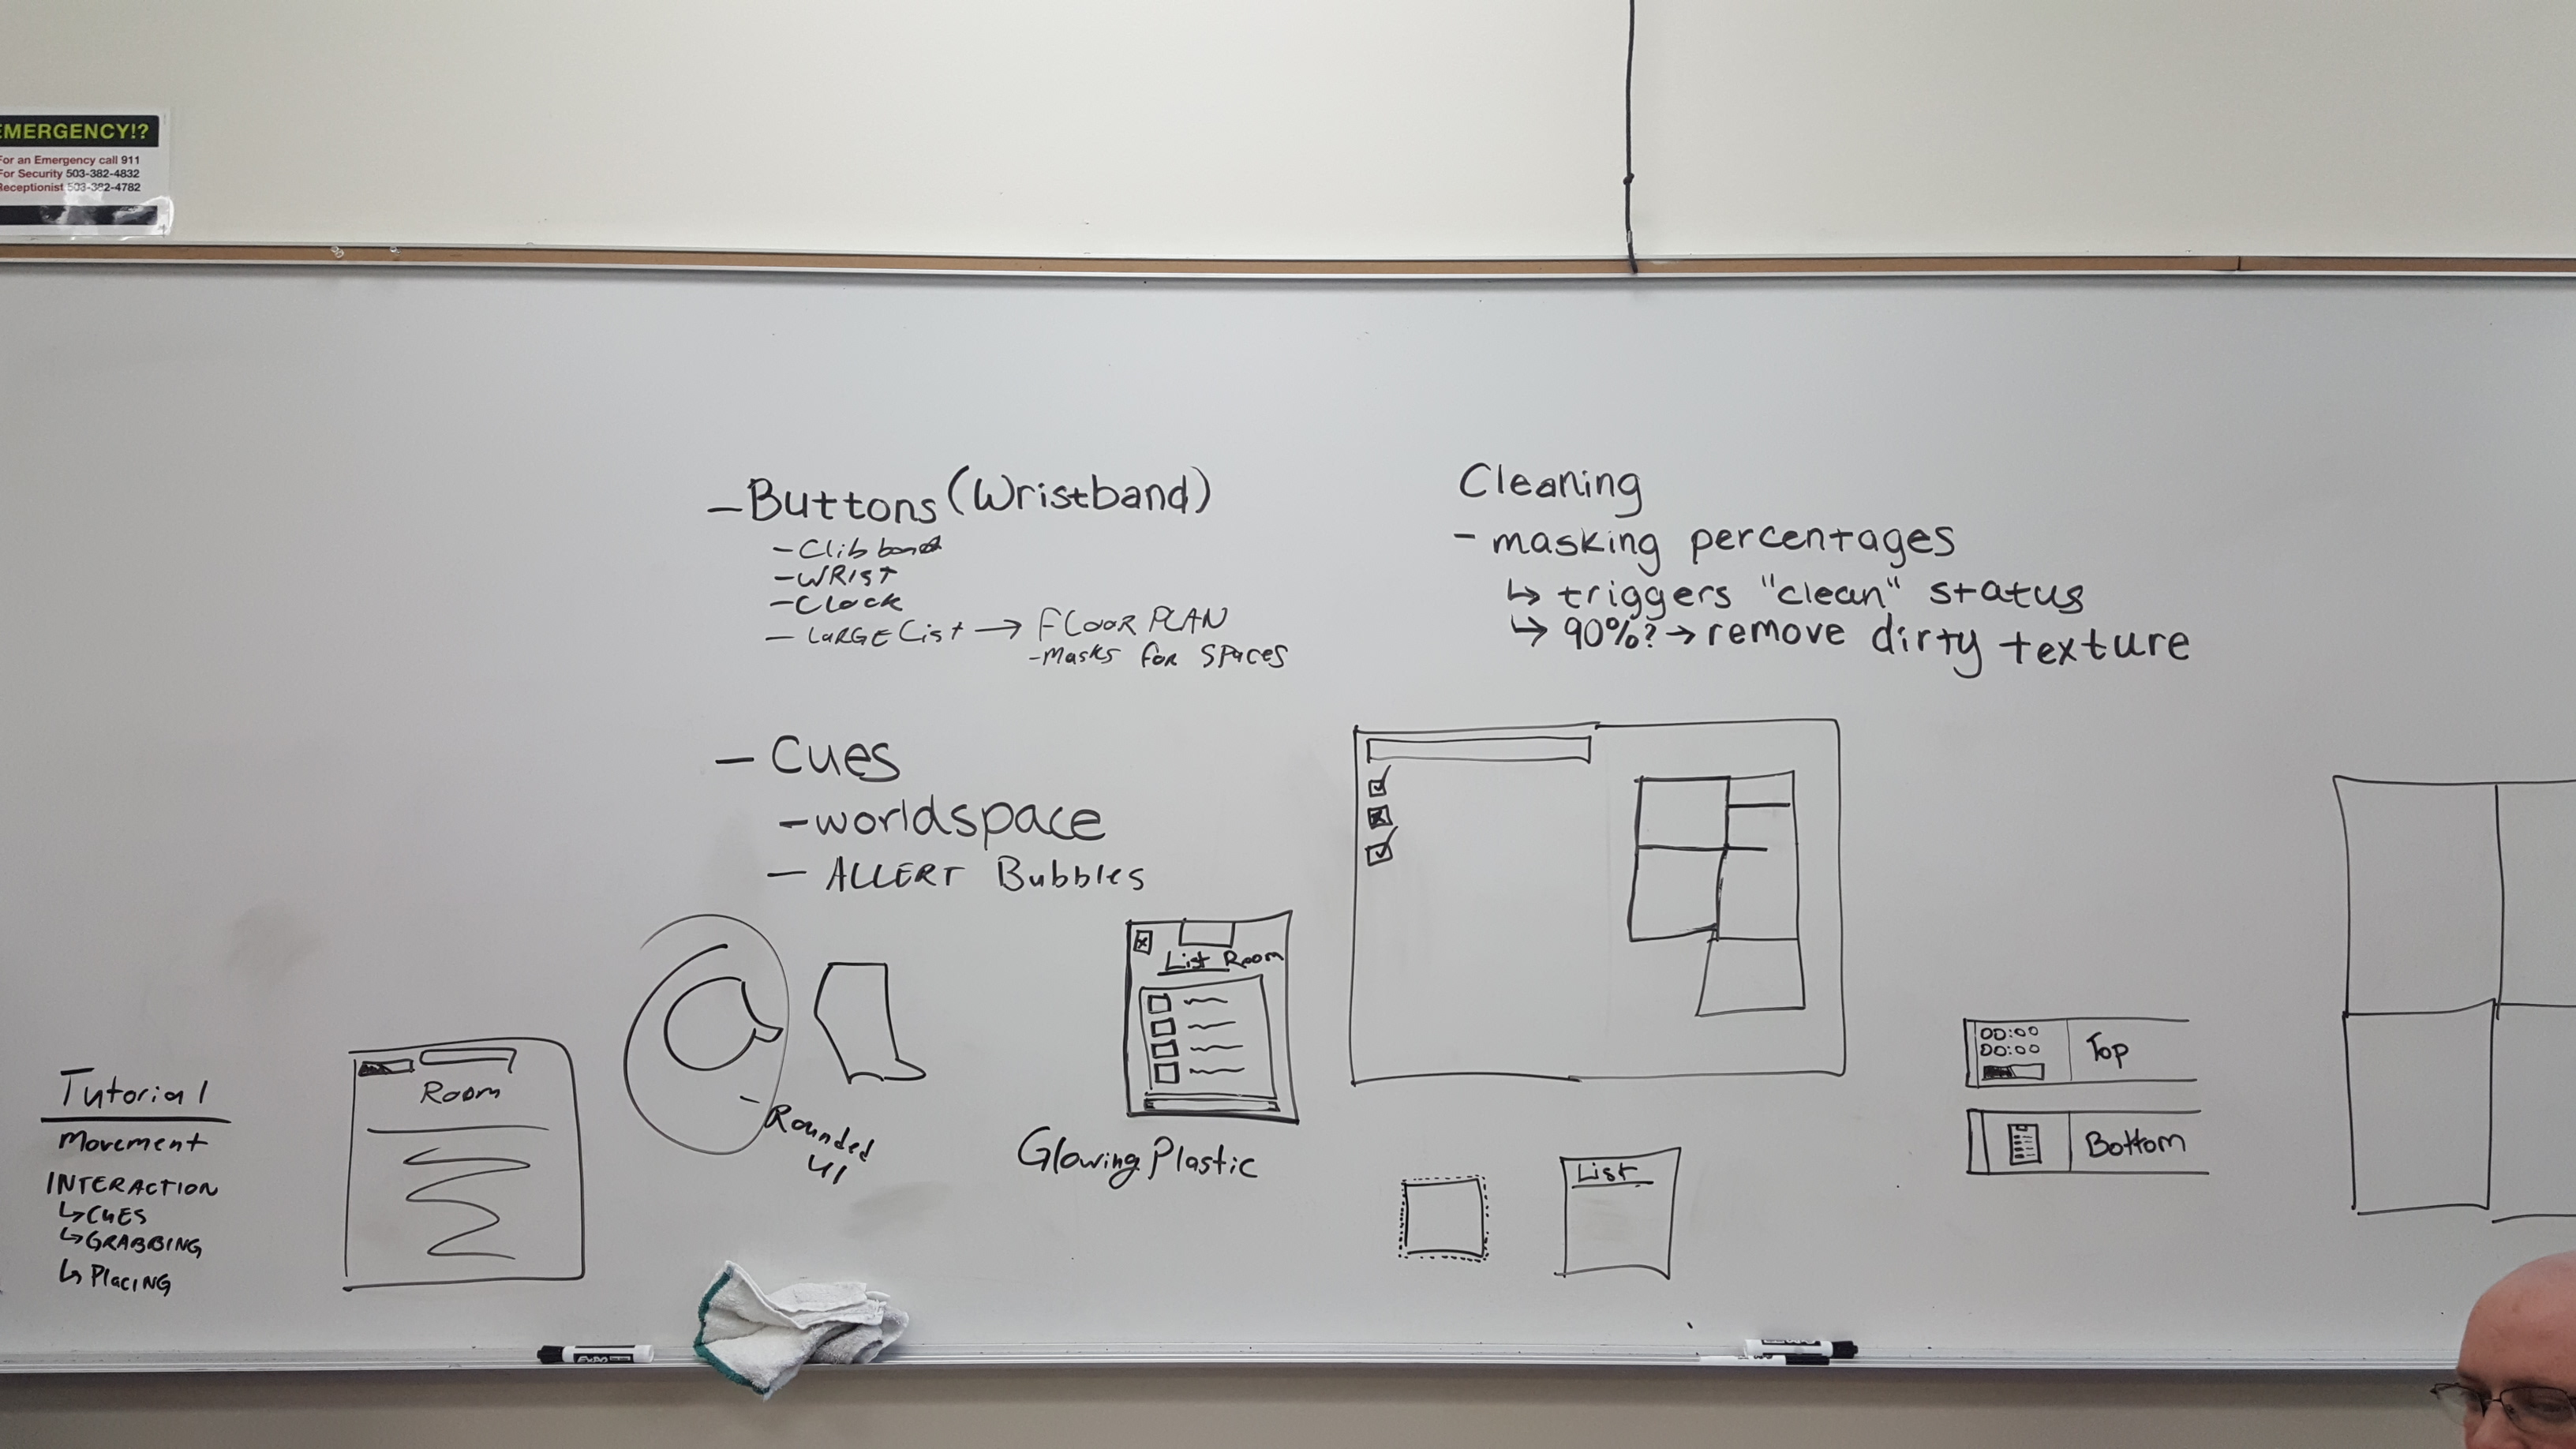 EMERGENCY!?
For an Emergency call 911
For Security 503-382-4832
Receptionist 503-382-4782
- Buttons (Wristband)
- Clibboard
- WRIST
- Clock
- LARGE List → FLOOR PLAN
- Masks for SPACES
- Cues
- worldspace
- ALLERT Bubbles
Cleaning
- masking percentages
↳ triggers "clean" status
↳ 90%? → remove dirty texture
Tutorial
Movement
INTERACTION
↳ CUES
↳ GRABBING
↳ PlacING
Room
- Rounded
UI
List Room
Glowing Plastic
List
00:00
00:00
Top
Bottom
EXPO